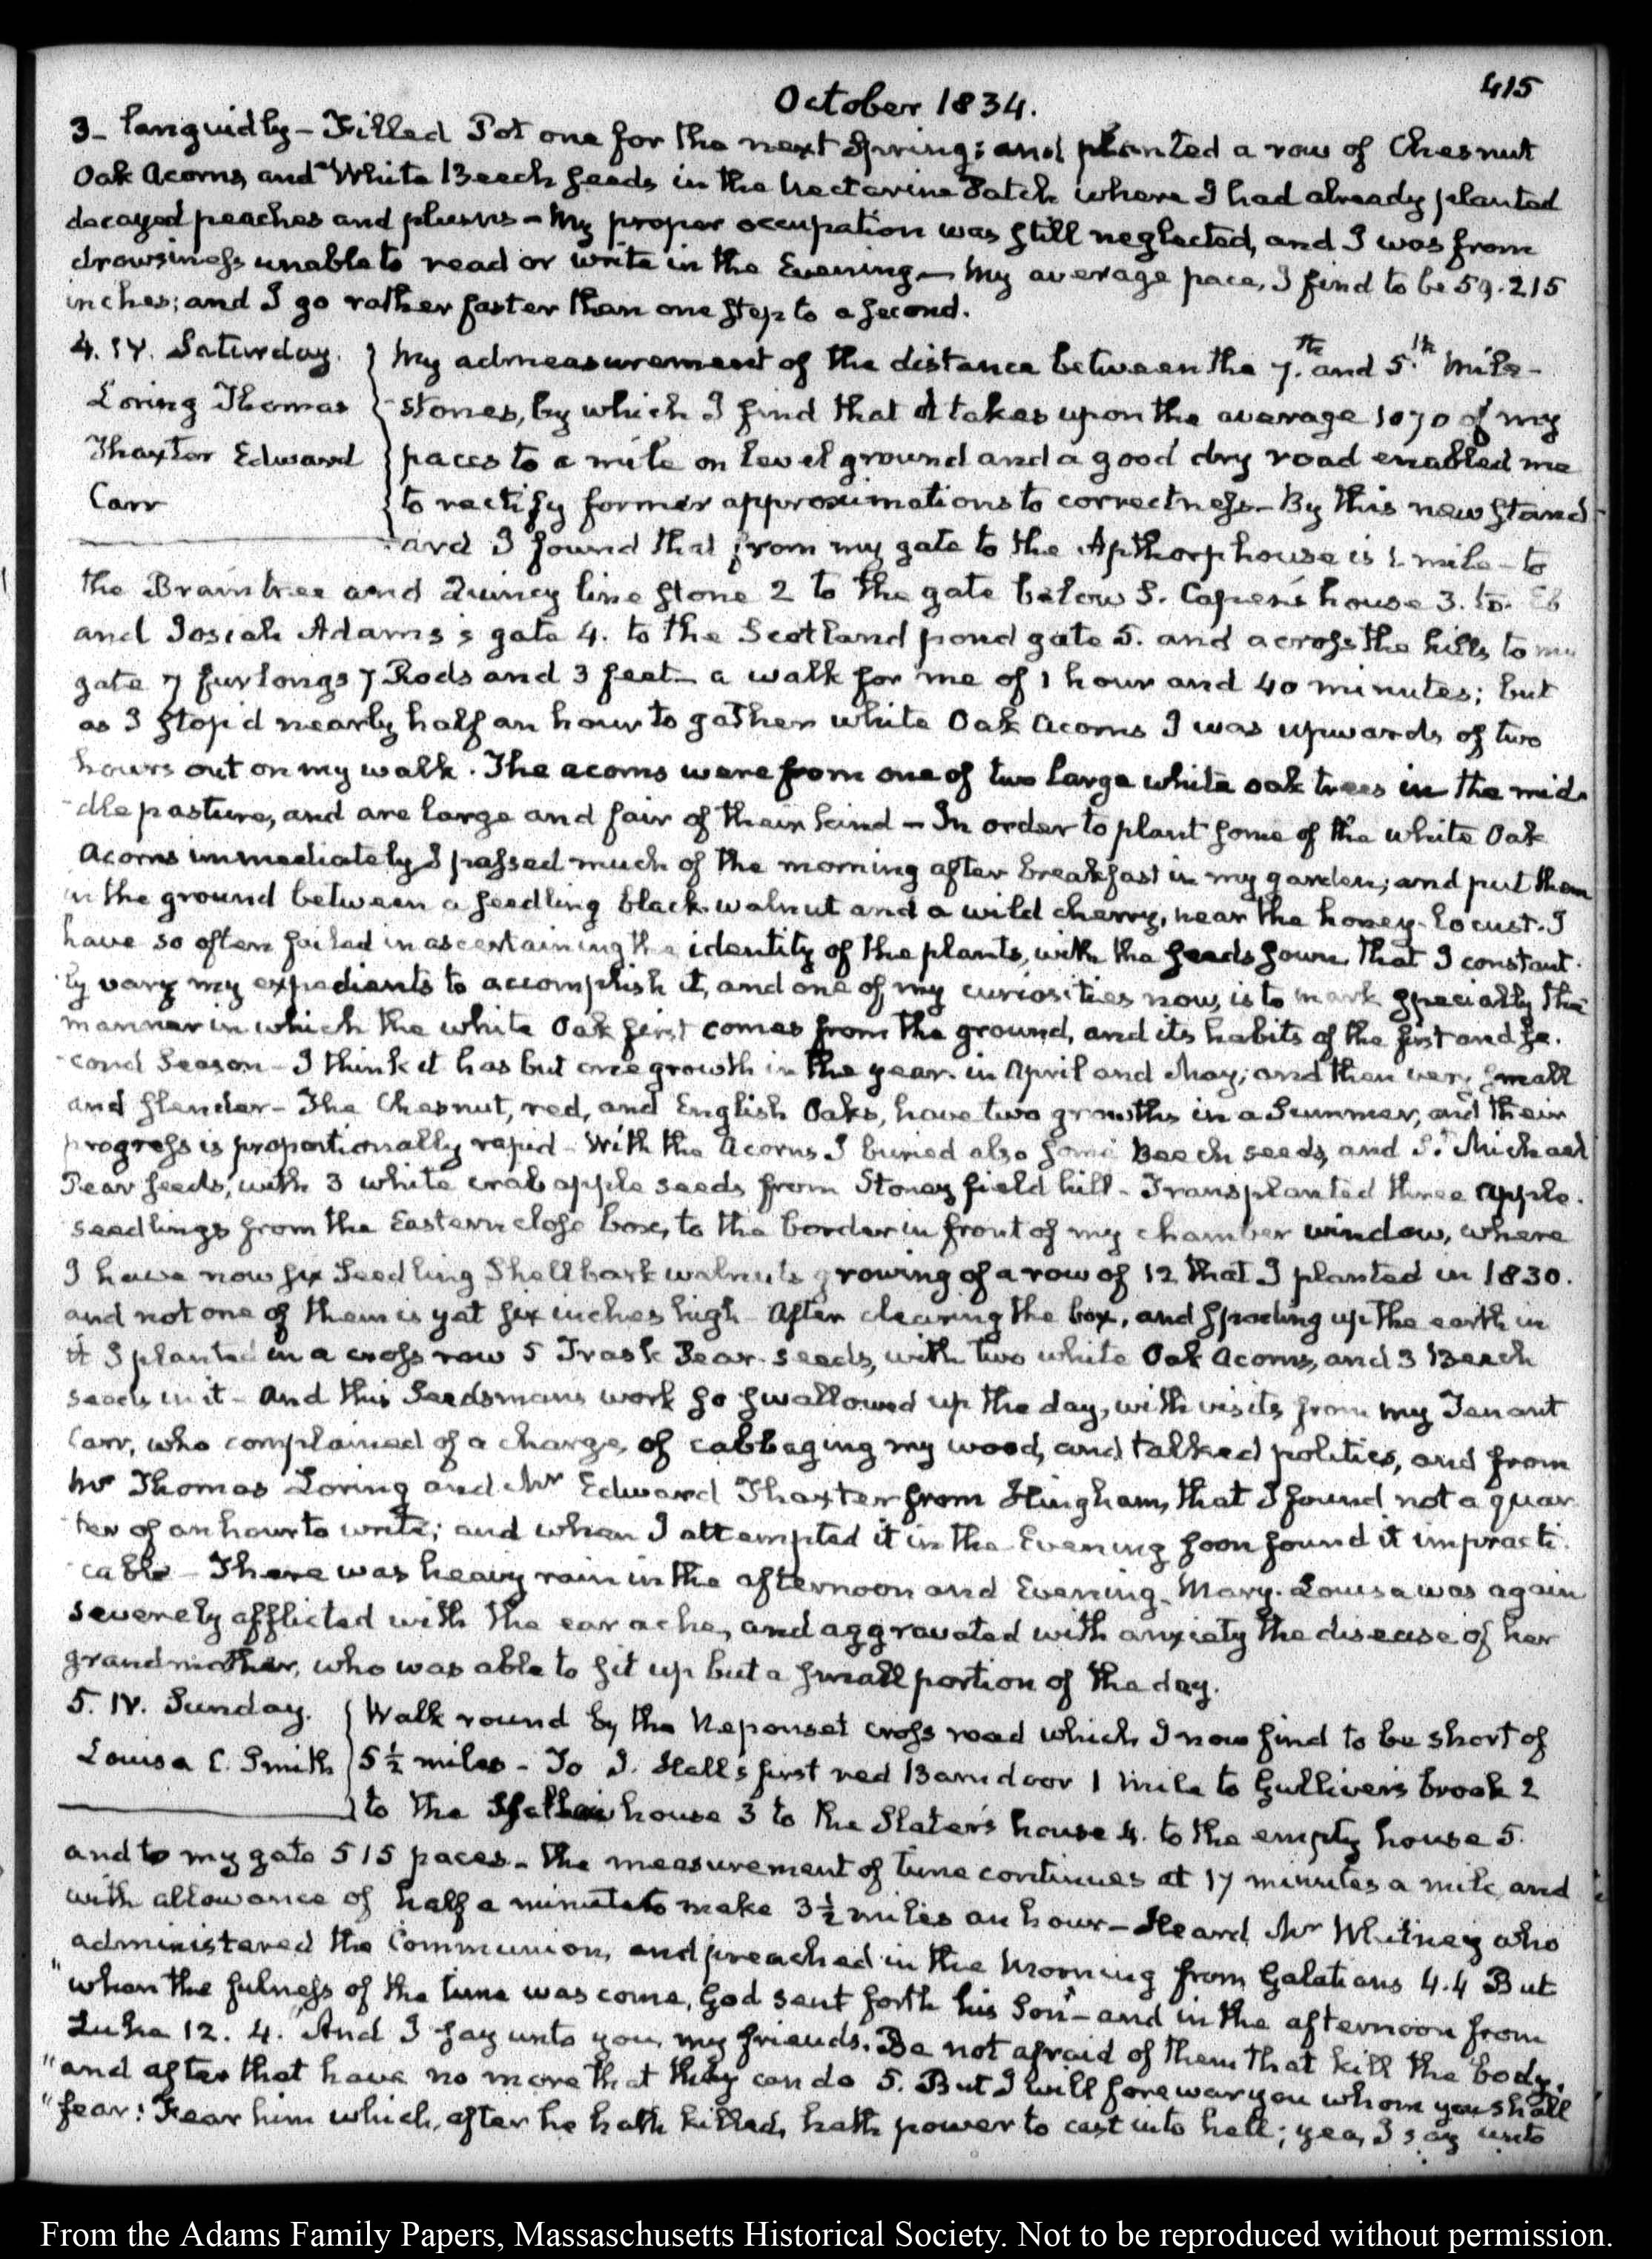 October 1834.
415
3- languidly - Filled Pot one for the next Spring; and planted a row of Chesnut
Oak Acorns, and White Beech seeds in the Nectarine Patch where I had already planted
decayed peaches and plums - My proper occupation was still neglected, and I was from
drowsiness unable to read or write in the Evening - My average pace, I find to be 59.215
inches; and I go rather faster than one step to a second.
4. IV. Saturday.
Loring Thomas
Thaxter Edward
Carr
My admeasurement of the distance between the 7.th and 5.th Mile-
stones, by which I find that it takes upon the average 1070 of my
paces to a mile on level ground and a good dry road enabled me
to rectify former approximations to correctness - By this new stand-
ard I found that from my gate to the Apthorp house is 1 mile - to
the Braintree and Quincy line stone 2 to the gate below S. Capen's house 3. to Eb
and Josiah Adams's gate 4. to the Scotland pond gate 5. and across the hills to my
gate 7 furlongs 7 Rods and 3 feet - a walk for me of 1 hour and 40 minutes; but
as I stop'd nearly half an hour to gather white Oak Acorns I was upwards of two
hours out on my walk. The acorns were from one of two large white oak trees in the mid-
dle pasture, and are large and fair of their kind - In order to plant some of the white Oak
Acorns immediately I passed much of the morning after breakfast in my garden; and put them
in the ground between a seedling black walnut and a wild cherry, near the honey-locust. I
have so often failed in ascertaining the identity of the plants, with the seeds sown, that I constant-
ly vary my expedients to accomplish it, and one of my curiosities now, is to mark specially the
manner in which the white Oak first comes from the ground, and its habits of the first and se-
cond Season - I think it has but one growth in the year. in April and May; and then very small
and slender - The Chesnut, red, and English Oaks, have two growths in a Summer, and their
progress is proportionally rapid - With the Acorns I buried also some Beech seeds, and St. Michael
Pear seeds, with 3 white crab apple seeds from Stoney field hill - Transplanted three apple-
seedlings from the Eastern close box, to the border in front of my chamber window, where
I have now six Seedling Shellbark walnuts growing of a row of 12 that I planted in 1830.
and not one of them is yet six inches high - After clearing the box, and spading up the earth in
it I planted in a cross row 5 Trask Pear-seeds, with two white Oak Acorns, and 3 Beech
seeds in it - And this Seedsmans work so swallowed up the day, with visits from my Tenant
Carr, who complained of a charge of cabbaging my wood, and talked politics, and from
Mr Thomas Loring and Mr Edward Thaxter from Hingham, that I found not a quar-
ter of an hour to write; and when I attempted it in the Evening soon found it impracti-
cable - There was heavy rain in the afternoon and Evening. Mary-Louisa was again
severely afflicted with the ear ache, and aggravated with anxiety the disease of her
grandmother, who was able to sit up but a small portion of the day.
5. IV. Sunday.
Louisa C. Smith
Walk round by the Neponset cross road which I now find to be short of
5½ miles - To J. Hall's first red Barn door 1 Mile to Gulliver's brook 2
to the house 3 to the Slater's house 4. to the empty house 5.
and to my gate 515 paces - the measurement of time continues at 17 minutes a mile and
with allowance of half a minute to make 3½ miles an hour - Heard Mr Whitney who
administered the Communion, and preached in the Morning from Galatians 4.4 But
"when the fulness of the time was come, God sent forth his Son" - and in the afternoon from
Luke 12. 4. "And I say unto you, my friends. Be not afraid of them that kill the body,
"and after that have no more that they can do 5. But I will forewarn you whom you shall
"fear: Fear him which, after he hath killed, hath power to cast into hell; yea, I say unto
From the Adams Family Papers, Massaschusetts Historical Society. Not to be reproduced without permission.